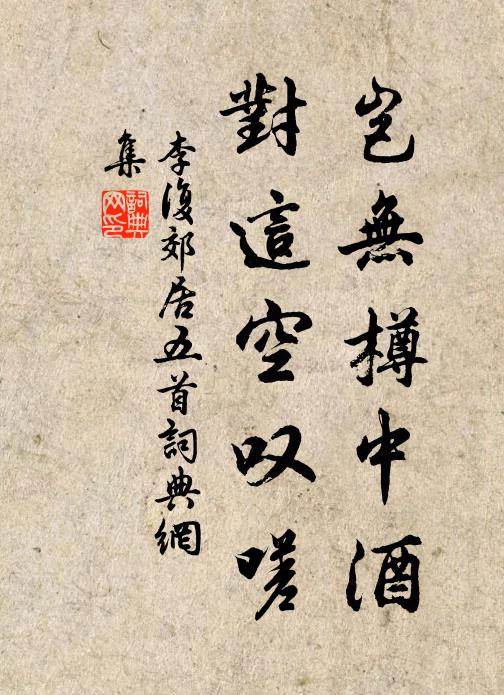 豈無樽中酒
對這空叹嗟
李復郊居五首詞典網
集
詞典
网印